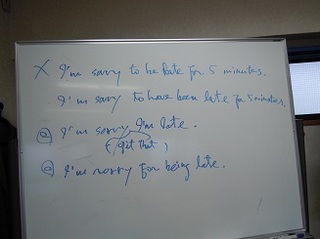 X I'm sorry to be late for 5 minutes.
I'm sorry to have been late for 5 minutes.
I'm sorry I'm late.
( that )
I'm sorry for being late.